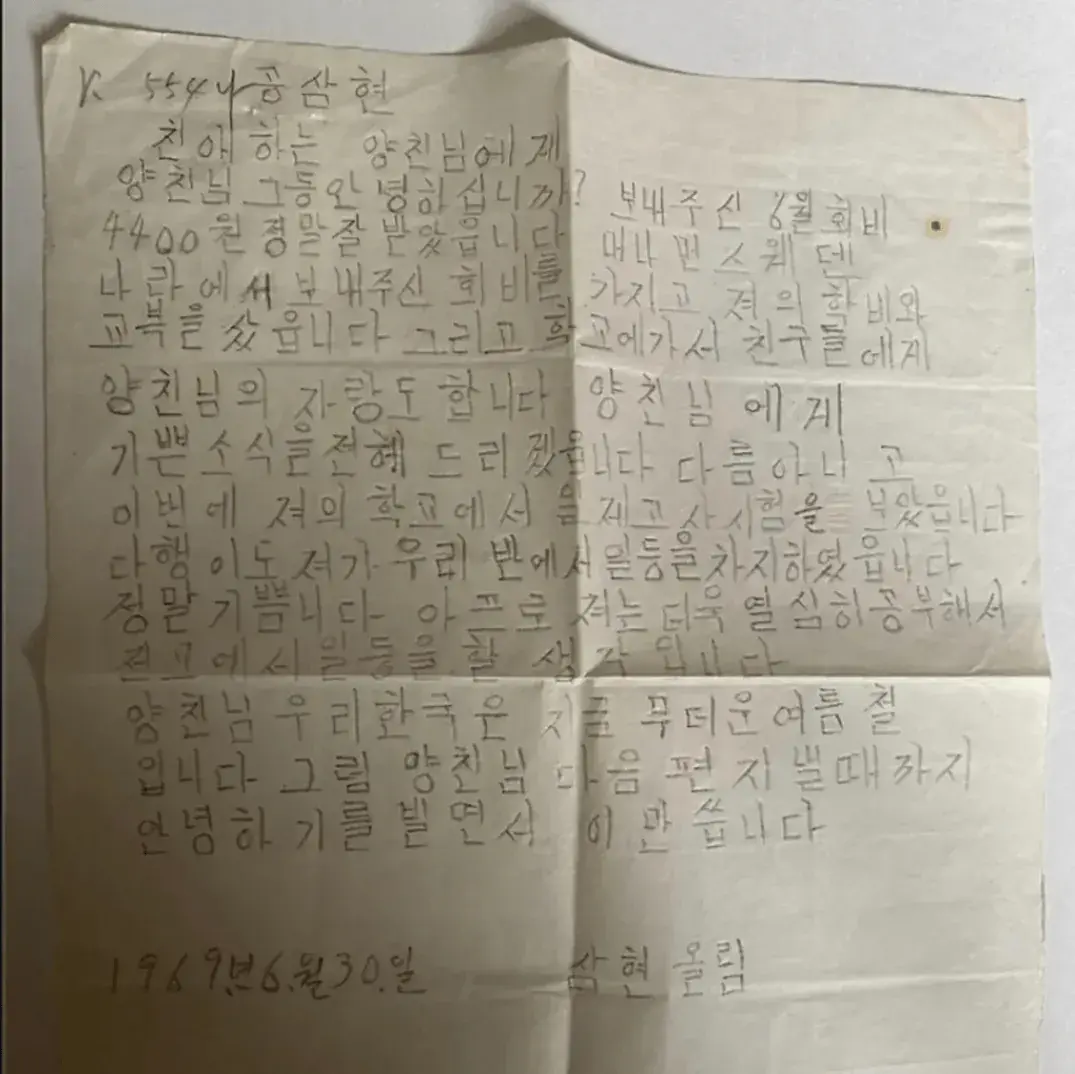 K. 554 공삼현
친애하는 양친님에게
양친님 그동안 녕하십니까? 보내주신 6월 회비
4400원 정말잘 받았읍니다 머나먼 스웨덴
나라에서 보내주신 회비를 가지고 져의 학비와
교복을 샀읍니다 그리고 학교에가서 친구들에게
양친님의 자랑도 합니다 양친님에게
기쁜소식을전해 드리겠읍니다 다름아니고
이번에 져의 학교에서 일제고사시험을 보았읍니다
다행이도 져가 우리 반에서 일등을차지하였읍니다
정말 기쁩니다 아프로 져는 더욱 열심히공부해서
전교에서 일등을 할 생각입니다
양친님 우리한국은 지금 무더운여름철
입니다 그림 양친님 다음 편지 낼때까지
안녕하기를 빌면서 이만 씁니다
1969.년6.월30.일 삼현 올림